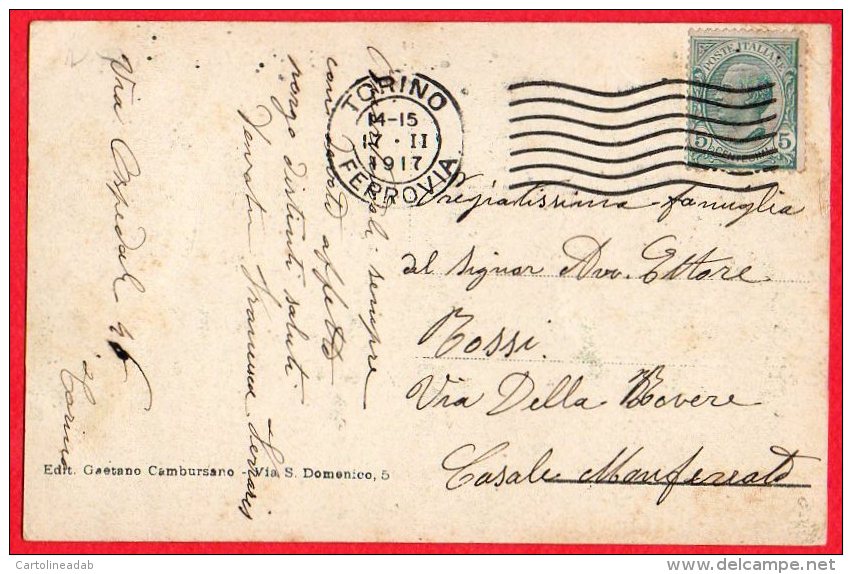 TORINO
14-15
17 · II
1917
FERROVIA
POSTE ITALIANE
5 CENTESIMI 5
Pregiatissima famiglia
del Signor Avv. Ettore
Rossi
Via Della Rovere
Casale Monferrato
sempre
con affetto
porge distinti saluti
Via Ospedale
Torino
Edit. Gaetano Cambursano - Via S. Domenico, 5
Cartolineadab
www.delcampe.net